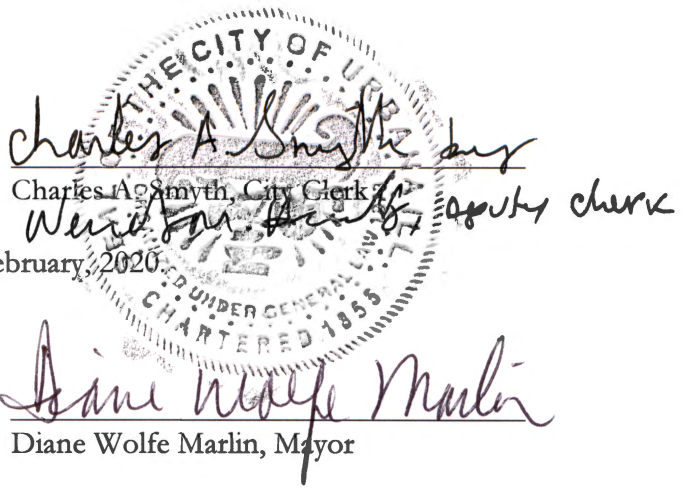 THE CITY OF URBANA
Charles A Smyth by
Charles A. Smyth, City Clerk
Deputy Clerk
ebruary, 2020.
UNDER GENERAL LAW
CHARTERED 1855
Diane Wolfe Marlin
Diane Wolfe Marlin, Mayor